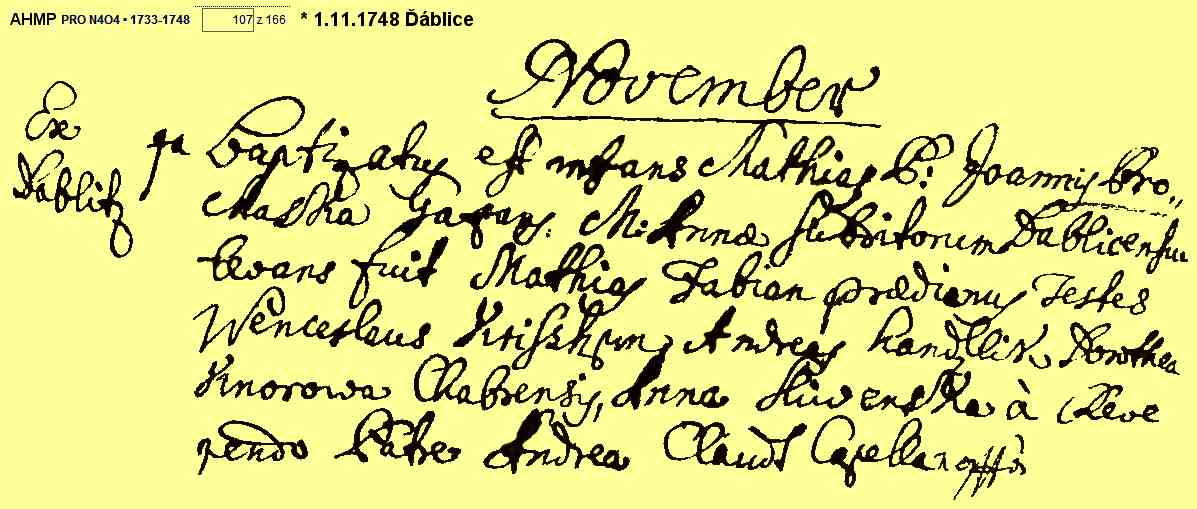 AHMP PRO N4O4 • 1733-1748 107 z 166 * 1.11.1748 Ďáblice
November
Ex
Dablitz
1a Baptizatus est infans Mathias P: Joannis Pro„
Maska M: Annæ subditorum Dablicensium
Levans fuit Mathias Fabian prædianus Testes
Wenceslaus Andreas Handllik Dorothea
Knorowa Chabrensis, Anna à Reve
rendo Patre Andrea Claudt Capellan